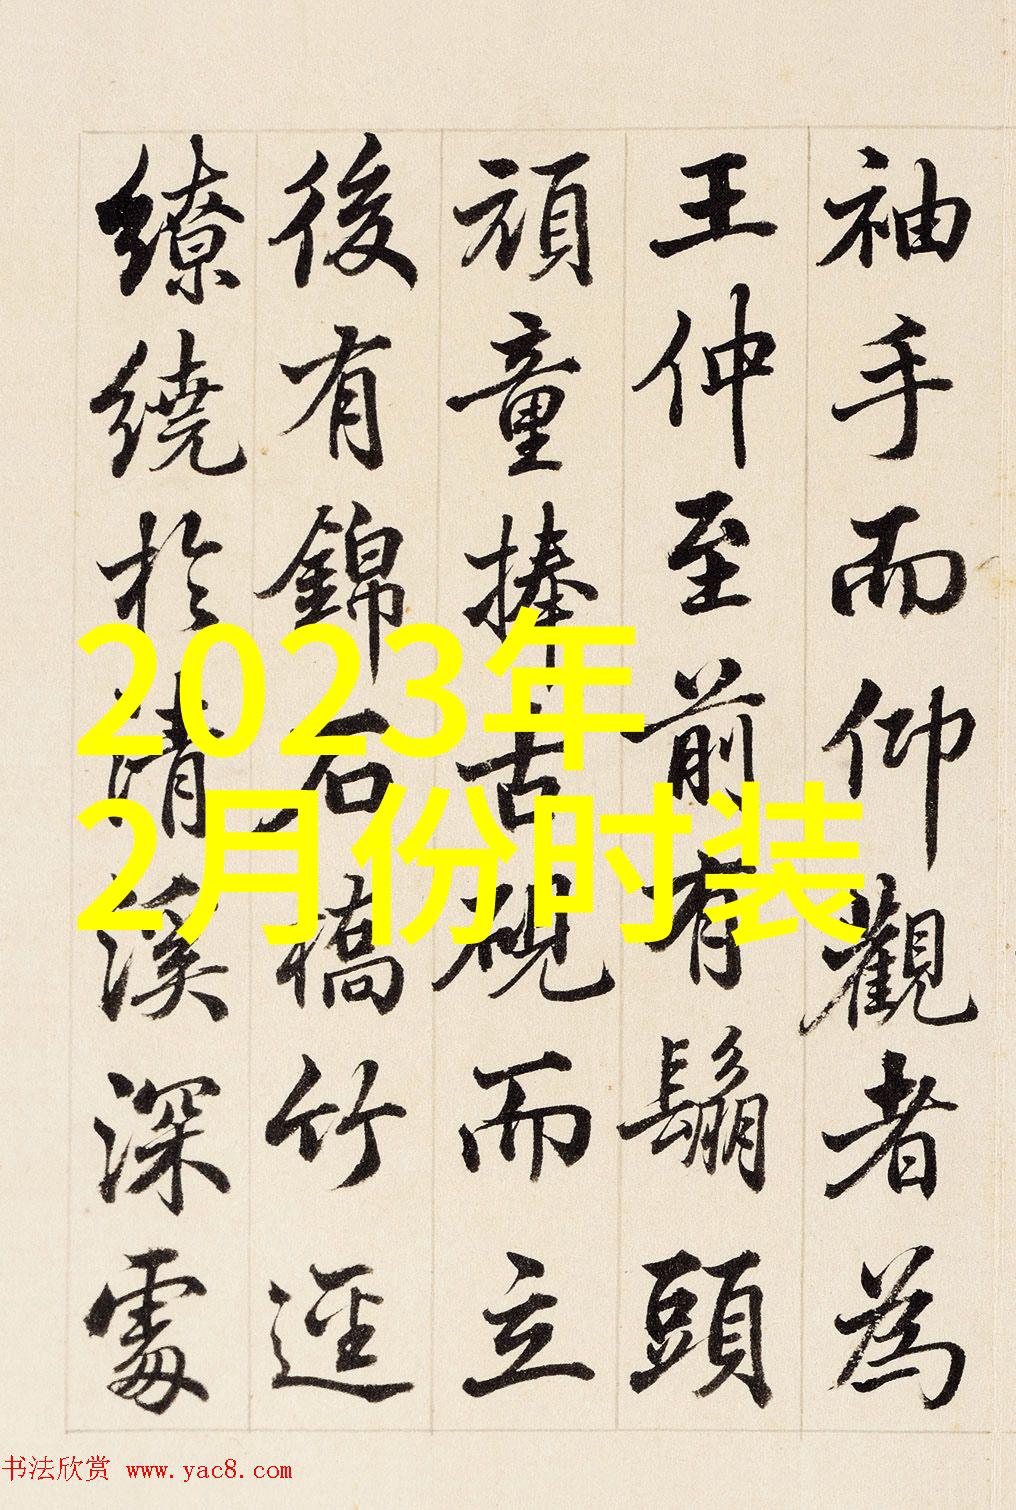 袖手而仰觀者為
王仲至前有鬅頭
頑童捧古硯而立
後有錦石橋竹逕
繚繞於清溪深處
2023年
2月份时装
书法欣赏 www.yac8.com